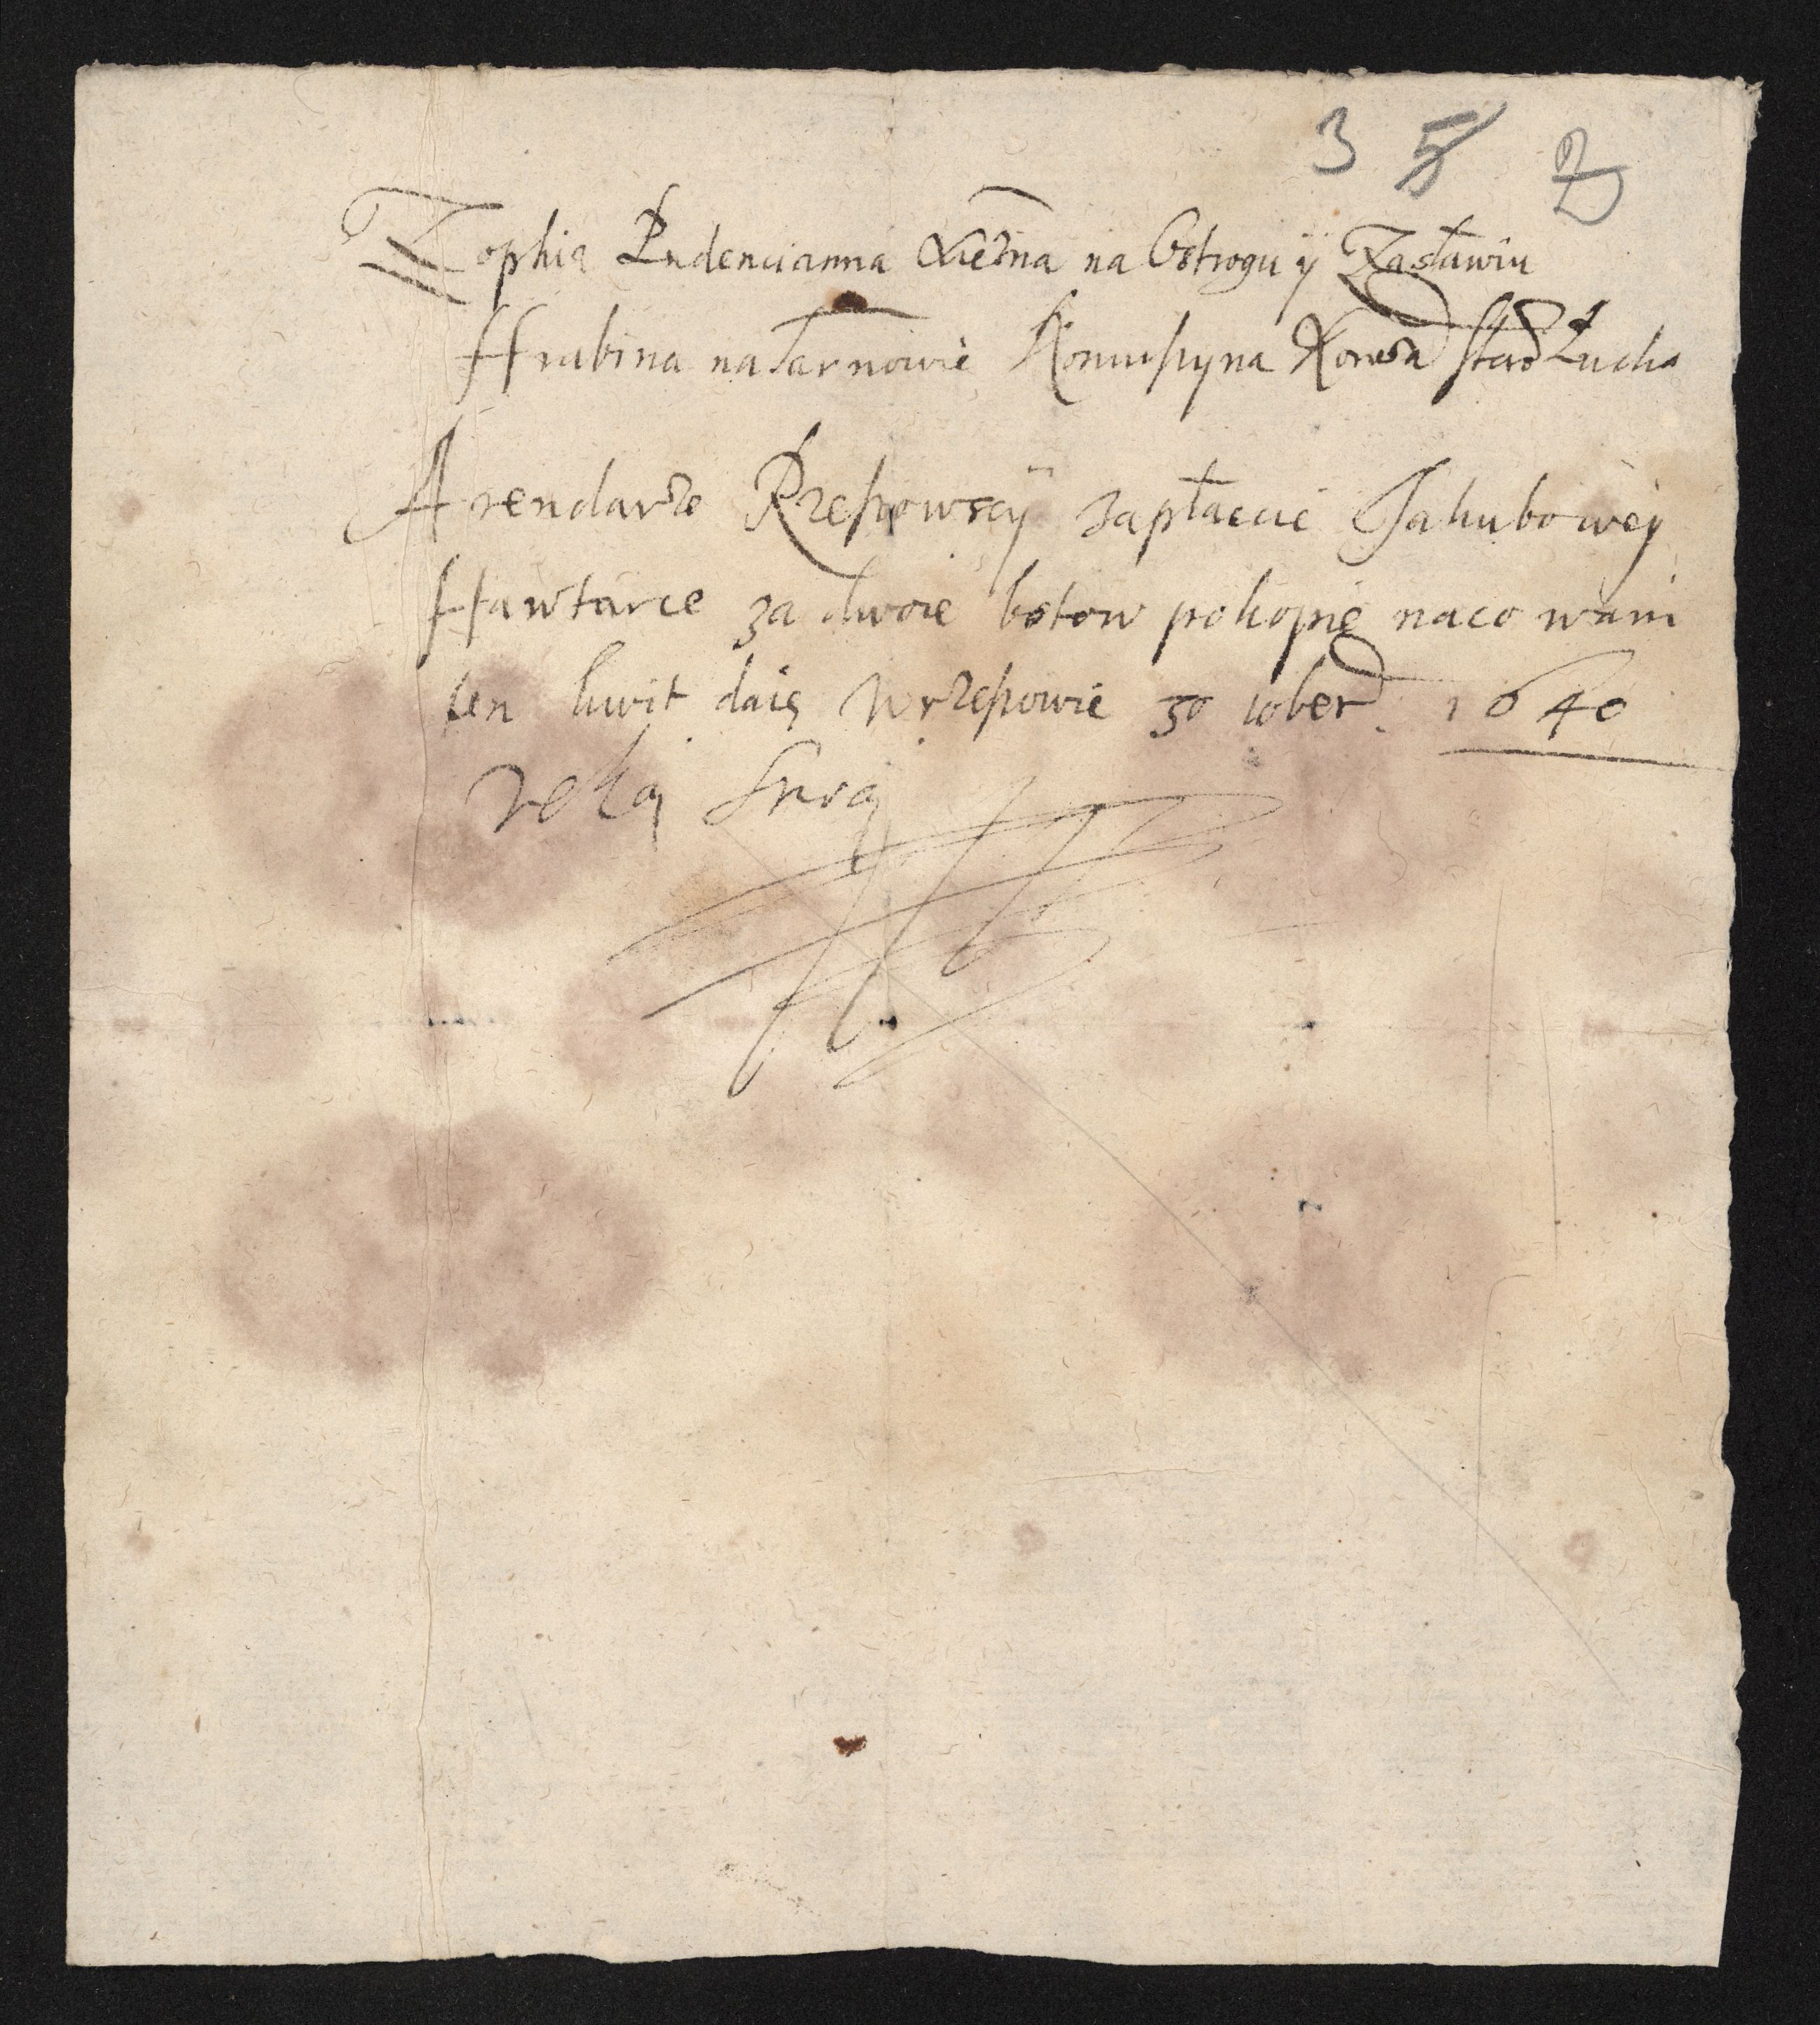 3 5 2
Zophia Pudencianna Xiężna na Ostrogu ÿ Zasławiu
Hrabina na Tarnowie Koniuszyna Koronna Star Łucka
Arendarze Rzepowscÿ zapłaccie Jakubowey
Hawtarce za dwoie botow po kopie na co wam
ten kwit daię w rzepowie 30 10ber 1640
ręką Swą